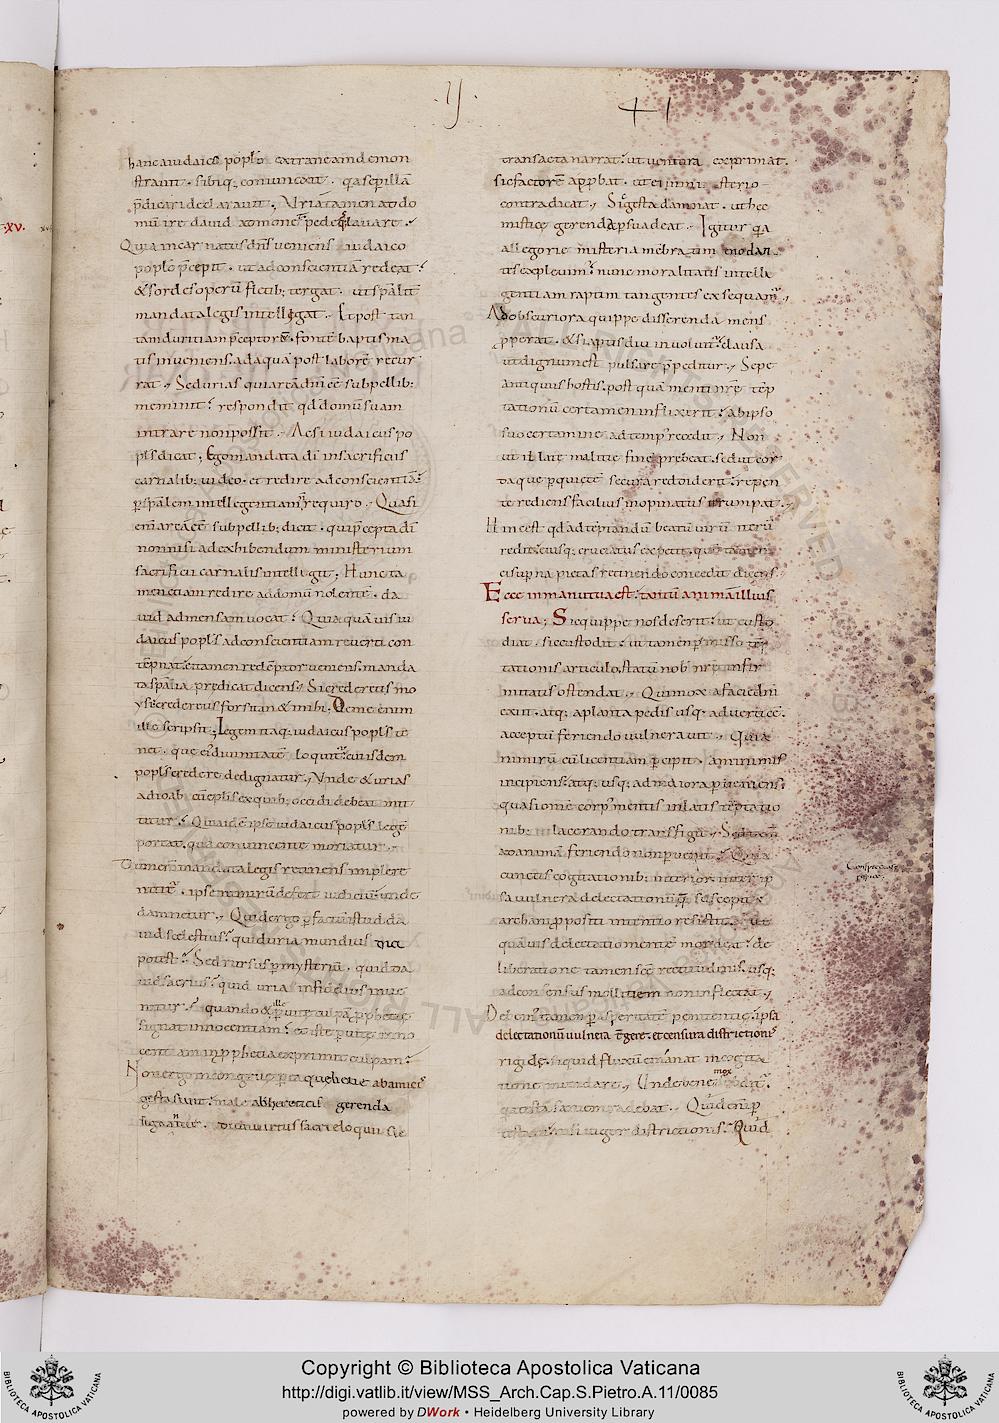 ·IJ·
41
hanc a iudaico poplo extraneam demon
strauit. sibiq; coniunxit. qa se p illa
pdicari declarauit; Uria tamen ad do
mu ire dauid admonet pedesq; lauare.
Quia incarnatus dns ueniens iudaico
poplo precepit. ut ad conscientia redeat.
& sordes operu fletib; tergat. ut spalit
mandata legis intellegat. Et post tan
tam duritiam preceptoru. fonte baptisma
tis inueniens. ad aqua post labore recur
rat. Sed urias qui arca dni ee sub pellib;
meminit. respondit qd domu suam
intrare non possit. Ac si iudaicus po
pls dicat; Ego mandata di in sacrificiis
carnalib; uideo. et redire ad conscientia
p spalem intellegentiam n requiro. Quasi
eni arca ee sub pellib; dicit. qui precepta di
non nisi ad exhibendum ministerium
sacrificii carnalis intellegit; Hunc ta
men etiam redire ad domu nolente. da
uid ad mensam uocat. Quia quauis iu
daicus popls ad conscientiam reuerti con
tepnat. ei tamen redeptor ueniens. manda
ta spalia predicat dicens. Si crederetis mo
ysi. crederetis forsitan & mihi. De me enim
ille scripsit; Legem itaq; iudaicus popls te
net. que ei diuinitate loquitur. cui isdem
popls credere dedignatur. Unde & urias
ad ioab cu eplis ex quib; occidi debeat mit
titur. Quia ide ipse iudaicus popls lege
portat. qua conuincente moriatur.
Dum eni mandata legis retinens implere
nititur. ipse nimiru defert iudiciu unde
damnetur. Quid ergo p factu istud da
uid scelestius. quid uria mundius dici
potest. Sed rursus p mysteriu. quid da
uid sacrius. quid uria infidelius inue
nitur. quando & ille p uite culpa pphetie
signat innocentiam. et iste p uite inno
centiam in pphetia exprimit culpam.
Non ergo incongrue p ea que bene ab amicis
gesta sunt. male ab hereticis gerenda
signantur. Diuini uirtus sacri eloquii sic
transacta narrat. ut uentura exprimat.
sic factore approbat. ut ei in misterio
contradicat. Sic gesta damnat. ut hec
mistice gerenda psuadeat. Igitur qa
allegorie misteria mebratim enodan
tes expleuim. nunc moralitatis intelle
gentiam raptim tangentes exsequam.
Ad obscuriora quippe disserenda mens
pperat. & si aptis diu inuoluitur. clausa
ut dignum est pulsare p peditur. Sepe
antiquus hostis. post qua menti nre tep
tationu certamen inflixerit. ab ipso
suo certamine ad temp recedit. Non
ut illate malitie fine prebeat. sed ut cor
da que p quiete secura reddiderit. repen
te rediens facilius inopinatus irrumpat.
Hinc est qd ad teptandu beatu uiru iteru
redit. eiusq; cruciatus expetit. que tamen
ei supna pietas retinendo concedit dicens.
Ecce in manu tua est. tantu anima illius
serua; Sic quippe nos deserit. ut custo
diat. sic custodit. ut tamen pmisso tep
tationis articulo. statu nob nre infir
mitatis ostendat. Qui mox a facie dni
exiit. atq; a planta pedis usq; ad uertice.
acceptu feriendo uulnerauit. Quia
nimiru cu licentiam pcipit. a minimis
incipiens. atq; usq; ad maiora pueniens.
quasi omne corp mentis inlatis teptatio
nib; lacerando transfigit. Sed tam
ad animam feriendo non puenit. Quia
cunctis cogitationib; interior. inter ip
sa uulnera delectationu que suscepit
archani ppositi intentio resistit. ut
quauis delectatio mente mordeat. de
liberatione tamen sce rectitudinis. usq;
ad consensus mollitiem non inflectat.
Debem tamen p asperitate penitentie. ipsa
delectationu uulnera tergere. et censura districtionis
rigide. siquid fluxu emanat in cogita
tione mundare. Unde bene mox subditur.
qui testa saniem radebat. Quid eni p
testa. nisi uigor districtionis. Quid
Copyright © Biblioteca Apostolica Vaticana
http://digi.vatlib.it/view/MSS_Arch.Cap.S.Pietro.A.11/0085
powered by DWork • Heidelberg University Library
BIBLIOTECA APOSTOLICA VATICANA
BIBLIOTECA APOSTOLICA VATICANA